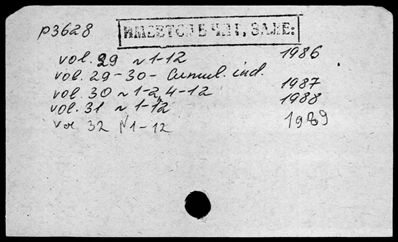 p3628
ИМЕЕТСЯ В ЧИТ. ЗАЛЕ:
vol. 29 N 1-12 1986
vol. 29-30- Cumul. ind.
vol. 30 N 1-2, 4-12 1987
vol. 31 N 1-12 1988
vol 32 N 1-12 1989